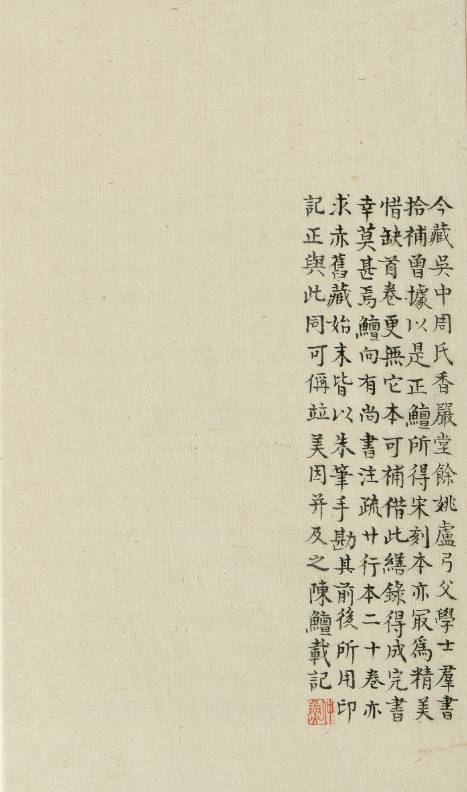 今藏吳中周氏香嚴堂餘姚盧弓父學士羣書
拾補曾據以是正鱣所得宋刻本亦㝡為精美
惜缺首卷更無它本可補借此繕錄得成完書
幸莫甚焉鱣向有尚書注疏廿行本二十卷亦
求赤舊藏始末皆以朱筆手勘其前後所用印
記正與此同可偁竝美因并及之陳鱣載記
仲魚